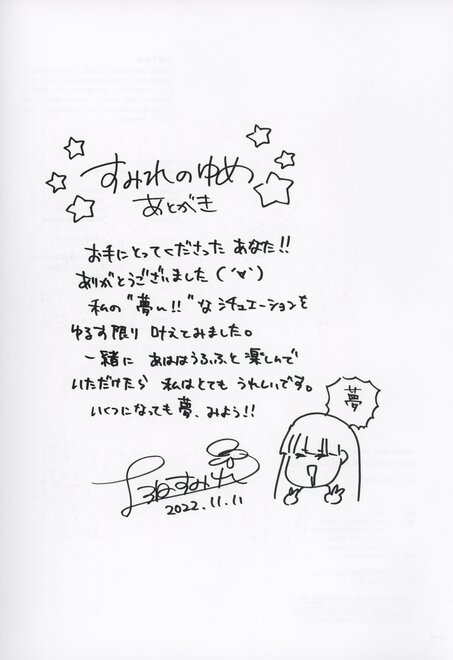 すみれのゆめ
あとがき
お手にとってくださった あなた!!
ありがとうございました (´∀`)
私の"夢い!!"な シチュエーションを
ゆるす限り 叶えてみました。
一緒に あははうふふと 楽しんで
いただけたら 私はとても うれしいです。
いくつになっても 夢、みよう!!
夢
すみれ
2022.11.11